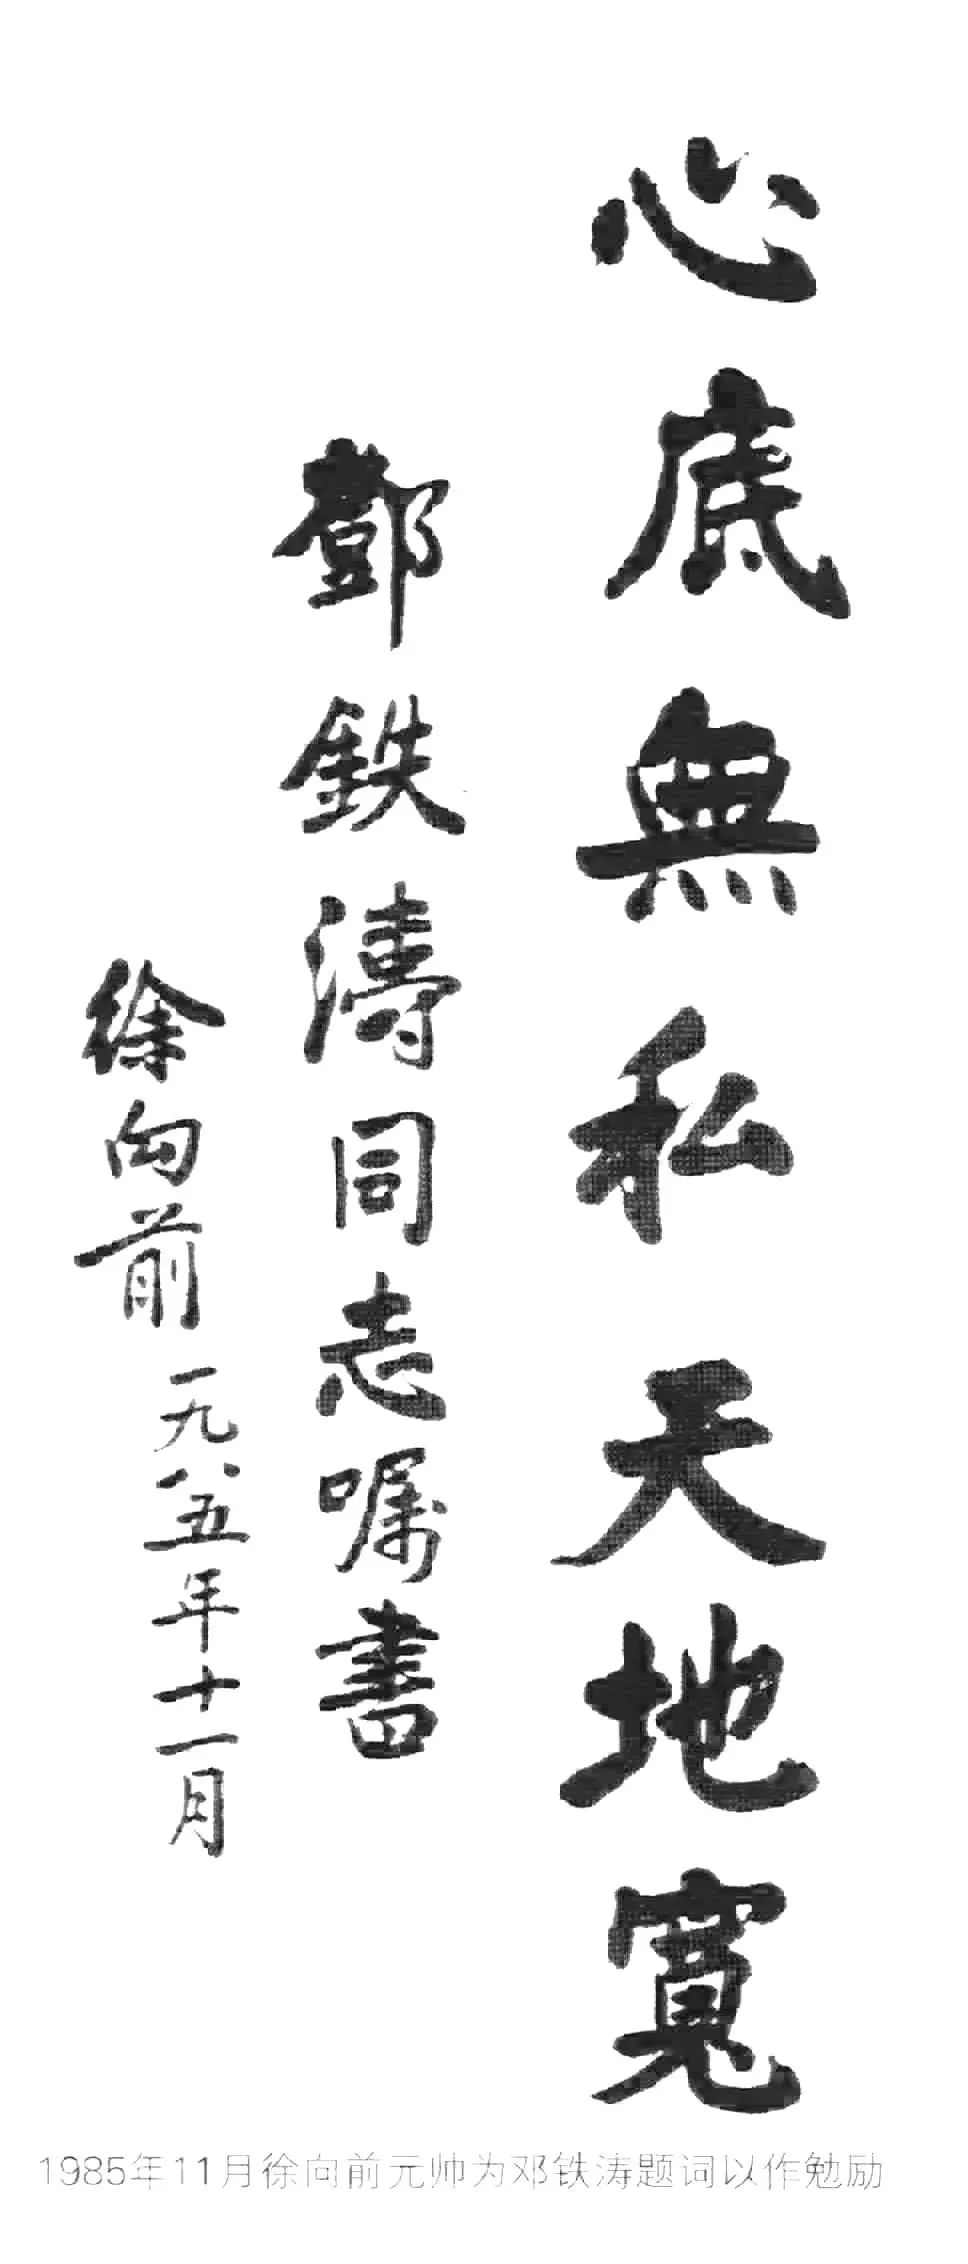 心底無私天地寬
鄧鉄濤同志嘱書
徐向前 一九八五年十一月
1985年11月徐向前元帅为邓铁涛题词以作勉励